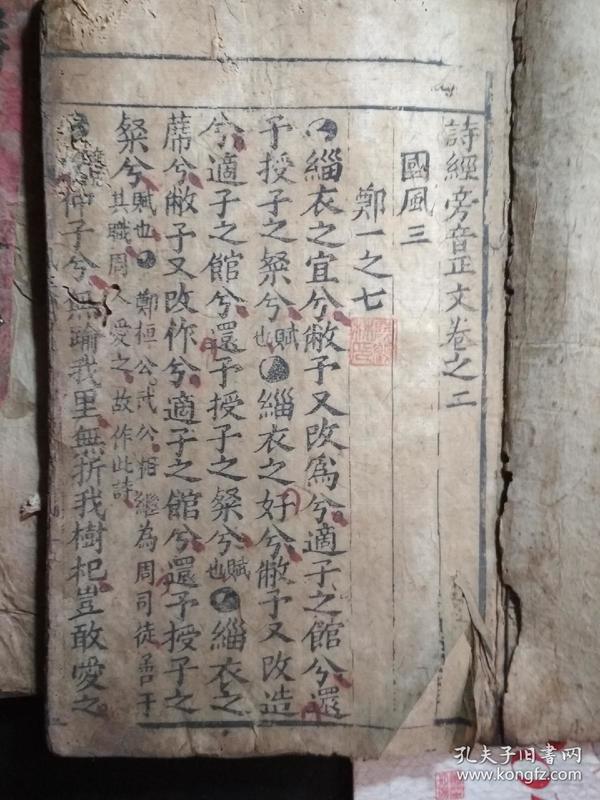 詩經旁音正文卷之二
國風三
鄭一之七
緇衣之宜兮敝予又改爲兮適子之館兮還
予授子之粲兮賦也緇衣之好兮敝予又改造
兮適子之館兮還予授子之粲兮賦也緇衣之
蓆兮敝予又改作兮適子之館兮還予授子之
粲兮賦也鄭桓公武公相繼為周司徒善于
其職周人愛之故作此詩
仲子兮無踰我里無折我樹杞豈敢愛之
孔夫子旧书网
www.kongfz.com